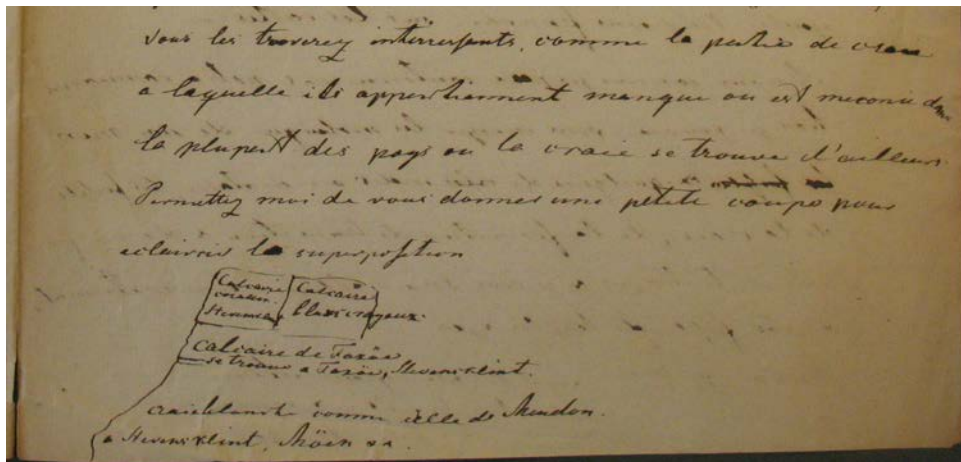 vous les troverez interressants, comme la partie de craie
a laquelle ils appertiennent manque ou est meconue dans
la plupert des pays ou la craie se trouve d'ailleurs.
Permettez moi de vous donner une petite coupe pour
eclaircir la superposition
Calcaire Calcaire
Stevens blanc crayeux.
calcaire de Faxöe
se trouve a Faxöe, Stevensklint.
craie blanche comme celle de Meudon.
a Stevensklint, Möen